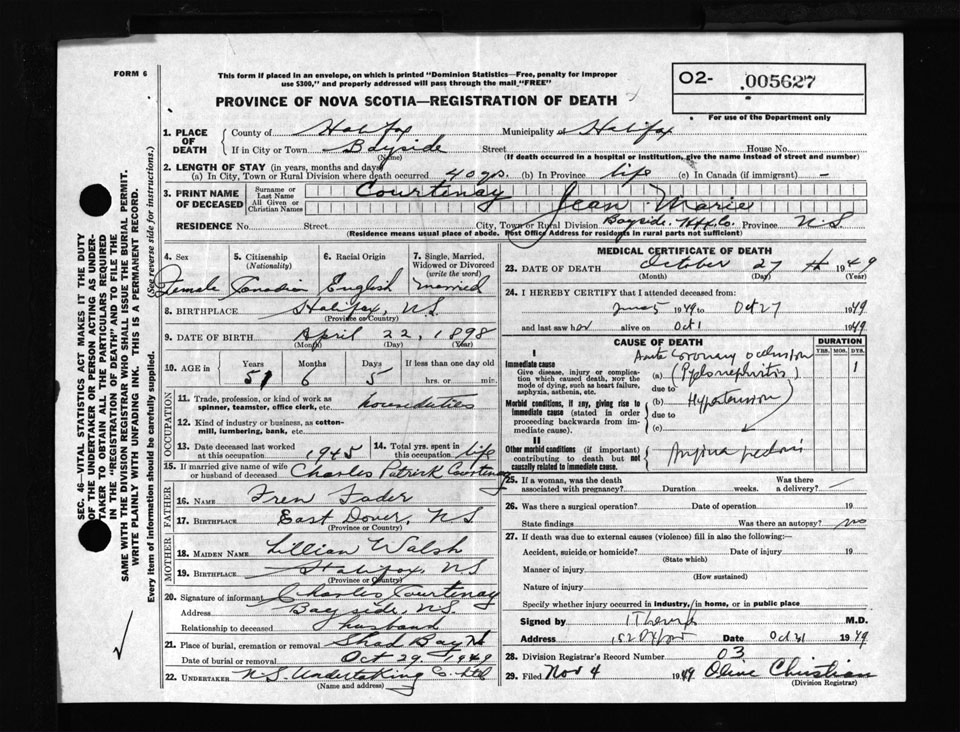 FORM 6
This form if placed in an envelope, on which is printed "Dominion Statistics—Free, penalty for improper
use $300," and properly addressed will pass through the mail "FREE"
O2- 005627
For use of the Department only
PROVINCE OF NOVA SCOTIA—REGISTRATION OF DEATH
1. PLACE OF DEATH
County of Halifax Municipality of Halifax
If in City or Town Bayside Street House No.
(Name) (If death occurred in a hospital or institution, give the name instead of street and number)
2. LENGTH OF STAY (in years, months and days)
(a) In City, Town or Rural Division where death occurred 40 yrs. (b) In Province life (c) In Canada (if immigrant) —
3. PRINT NAME OF DECEASED
Surname or Last Name Courtenay
All Given or Christian Names Jean Marie
RESIDENCE No. Street City, Town or Rural Division Bayside. Hfx Co. Province N.S.
(Residence means usual place of abode. Post Office Address for residents in rural parts not sufficient)
4. Sex 5. Citizenship (Nationality) 6. Racial Origin 7. Single, Married, Widowed or Divorced (write the word)
Female Canadian English married
8. BIRTHPLACE Halifax, N.S.
(Province or Country)
9. DATE OF BIRTH April 22, 1898
(Month) (Day) (Year)
10. AGE in Years Months Days If less than one day old
51 6 5 hrs. or min.
OCCUPATION
11. Trade, profession, or kind of work as spinner, teamster, office clerk, etc. houseduties
12. Kind of industry or business, as cotton-mill, lumbering, bank, etc.
13. Date deceased last worked at this occupation 1945 14. Total yrs. spent in this occupation life
15. If married give name of wife or husband of deceased Charles Patrick Courtenay
FATHER
16. NAME Fren Fader
17. BIRTHPLACE East Dover, N.S.
(Province or Country)
MOTHER
18. MAIDEN NAME Lillian Walsh
19. BIRTHPLACE Halifax, NS
(Province or Country)
20. Signature of informant Charles Courtenay
Address Bayside, NS
Relationship to deceased husband
21. Place of burial, cremation or removal Shad Bay NS
Date of burial or removal Oct 29. 1949
22. UNDERTAKER N.S. Undertaking Co. Ltd
(Name and address)
MEDICAL CERTIFICATE OF DEATH
23. DATE OF DEATH October 27 th 1949
(Month) (Day) (Year)
24. I HEREBY CERTIFY that I attended deceased from:
June 5 1949 to Oct 27 1949
and last saw her alive on Oct 1 1949
CAUSE OF DEATH DURATION
YRS. MOS. DYS.
I
Immediate cause
Give disease, injury or complication which caused death, NOT the mode of dying, such as heart failure, asphyxia, asthenia, etc.
(a) Acute Coronary Occlusion 1
(Pyelonephritis)
due to
Morbid conditions, if any, giving rise to immediate cause (stated in order proceeding backwards from immediate cause).
(b) Hypertension
due to
(c)
II
Other morbid conditions (if important) contributing to death but not causally related to immediate cause.
Angina pectoris
25. If a woman, was the death associated with pregnancy? Duration weeks. Was there a delivery? —
26. Was there a surgical operation? Date of operation 19
State findings Was there an autopsy? no
27. If death was due to external causes (violence) fill in also the following:—
Accident, suicide or homicide? Date of injury 19
(State which)
Manner of injury
(How sustained)
Nature of injury
Specify whether injury occurred in industry, in home, or in public place
Signed by M.D.
Address Date Oct 31 1949
28. Division Registrar's Record Number 03
29. Filed Nov 4 1949 Olive Christian
(Division Registrar)
SEC. 46—VITAL STATISTICS ACT MAKES IT THE DUTY
OF THE UNDERTAKER OR PERSON ACTING AS UNDER-
TAKER TO OBTAIN ALL THE PARTICULARS REQUIRED
IN THE "REGISTRATION OF DEATH" AND TO FILE THE
SAME WITH THE DIVISION REGISTRAR WHO SHALL ISSUE THE BURIAL PERMIT.
WRITE PLAINLY WITH UNFADING INK. THIS IS A PERMANENT RECORD.
Every item of information should be carefully supplied. (See reverse side for instructions.)